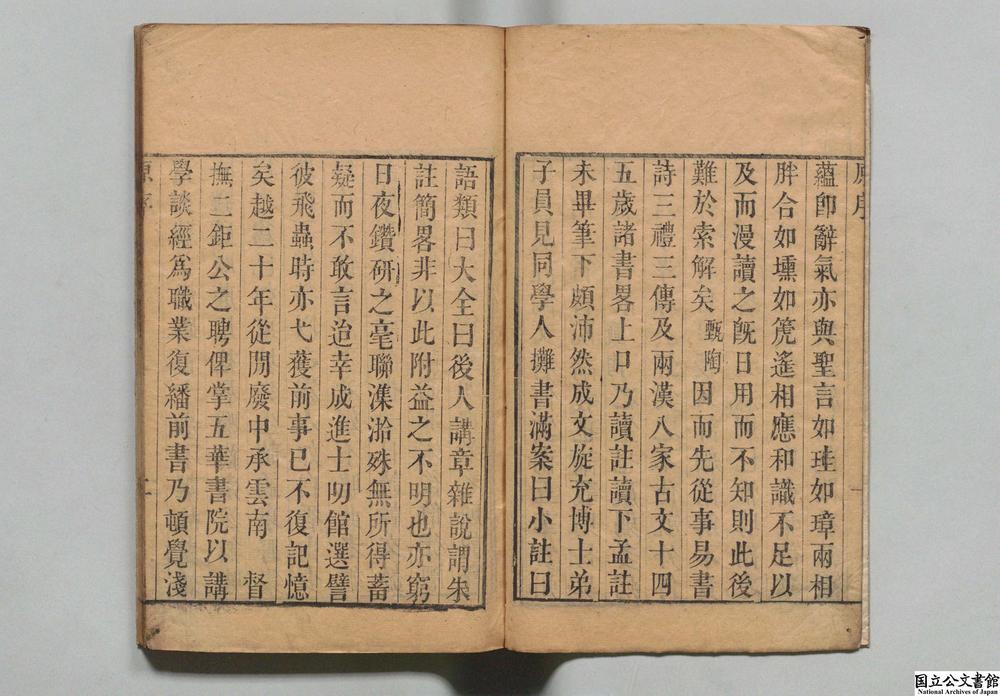 原序
蘊卽辭氣亦與聖言如珪如璋兩相
胖合如壎如篪遙相應和識不足以
及而漫讀之旣日用而不知則此後
難於索解矣甄陶因而先從事易書
詩三禮三傳及兩漢八家古文十四
五歲諸書畧上口乃讀註讀下孟註
未畢筆下頗沛然成文旋充博士弟
子員見同學人攤書滿案曰小註曰
一
語類曰大全曰後人講章雜說謂朱
註簡畧非以此附益之不明也亦窮
日夜鑽研之毫聯潗湁殊無所得蓄
疑而不敢言迨幸成進士叨館選譬
彼飛蟲時亦弋獲前事已不復記憶
矣越二十年從閒廢中承雲南 督
撫二鉅公之聘俾掌五華書院以講
學談經爲職業復繙前書乃頓覺淺
原序
二
国立公文書館
National Archives of Japan